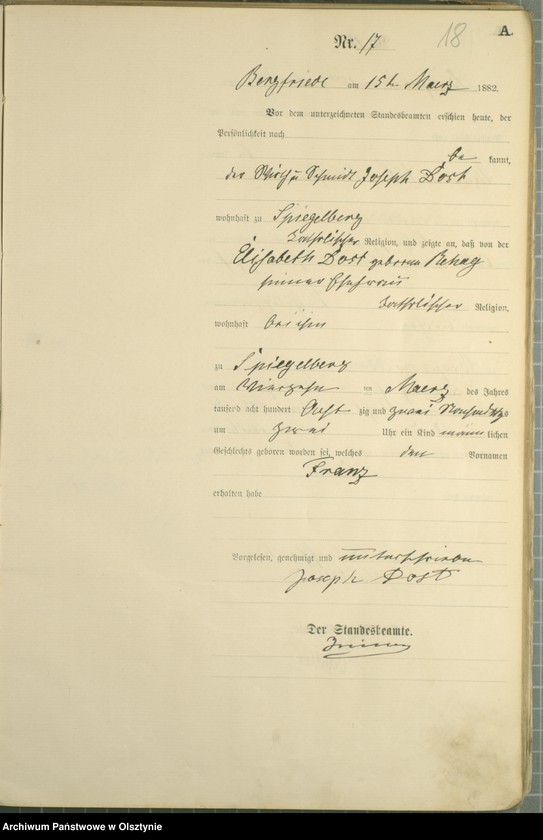 A.
18
Nr. 17
Bergfriede am 15t Maerz 1882.
Vor dem unterzeichneten Standesbeamten erschien heute, der
Persönlichkeit nach
be kannt,
der Wirth u Schmidt Joseph Dost
wohnhaft zu Spiegelberg
katholischer Religion, und zeigte an, daß von der
Elisabeth Dost geborene Rehag
seiner Ehefrau
katholischer Religion,
wohnhaft bei ihm
zu Spiegelberg
am vierzehn ten Maerz des Jahres
tausend acht hundert Acht zig und zwei Nachmittags
um zwei Uhr ein Kind männ lichen
Geschlechts geboren worden sei, welches den Vornamen
Franz
erhalten habe
Vorgelesen, genehmigt und unterschrieben
Joseph Dost
Der Standesbeamte.
Archiwum Państwowe w Olsztynie